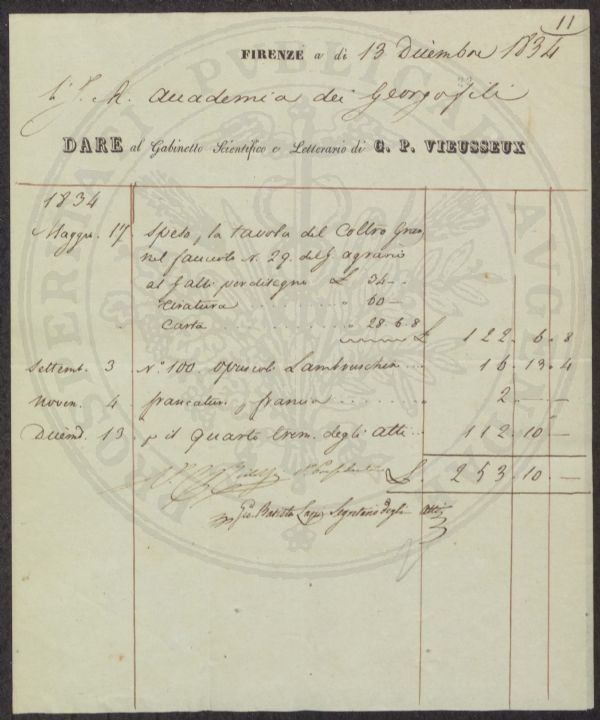 11
FIRENZE a di 13 Diciembre 1834
L'I. R. Accademia dei Georgofili
DARE al Gabinetto Scientifico e Letterario di G. P. VIEUSSEUX
1834
Maggio. 17 Speso, la tavola del Coltro Gran,
nel fascicolo N. 29. del G. agrario
al Galli per disegno £ 34 - -
Tiratura . . . . . . . . " 60 -
Carta . . . . . . . . " 28. 6. 8
£ 122. 6. 8
Settemb. 3 N.° 100. opuscoli Lambruschini . . . " 16. 13. 4
Novem. 4 francatura p. francia . . . . . . . . " 2. - -
Diciemb. 13 p il Quarto trim. degli Atti . . . " 112. 10. -
£. 253. 10. -
Gio. Batista Lapi Segretario degli Atti